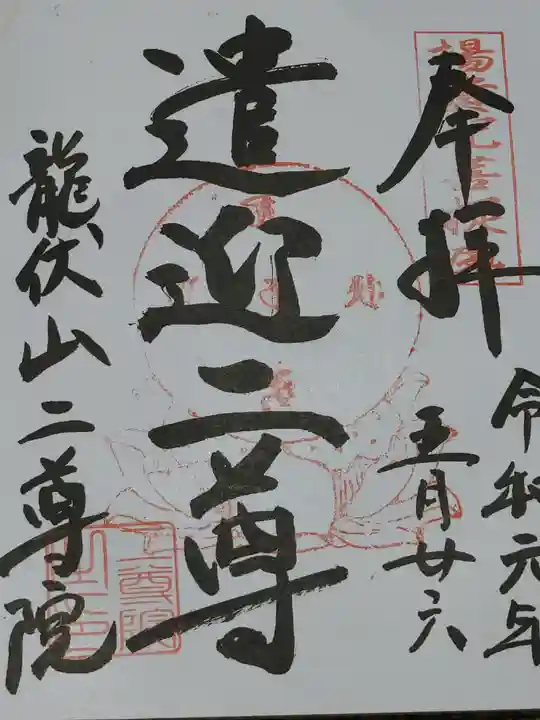 奉拝
令和元年
五月廿六
遣迎二尊
龍伏山二尊院
二尊院